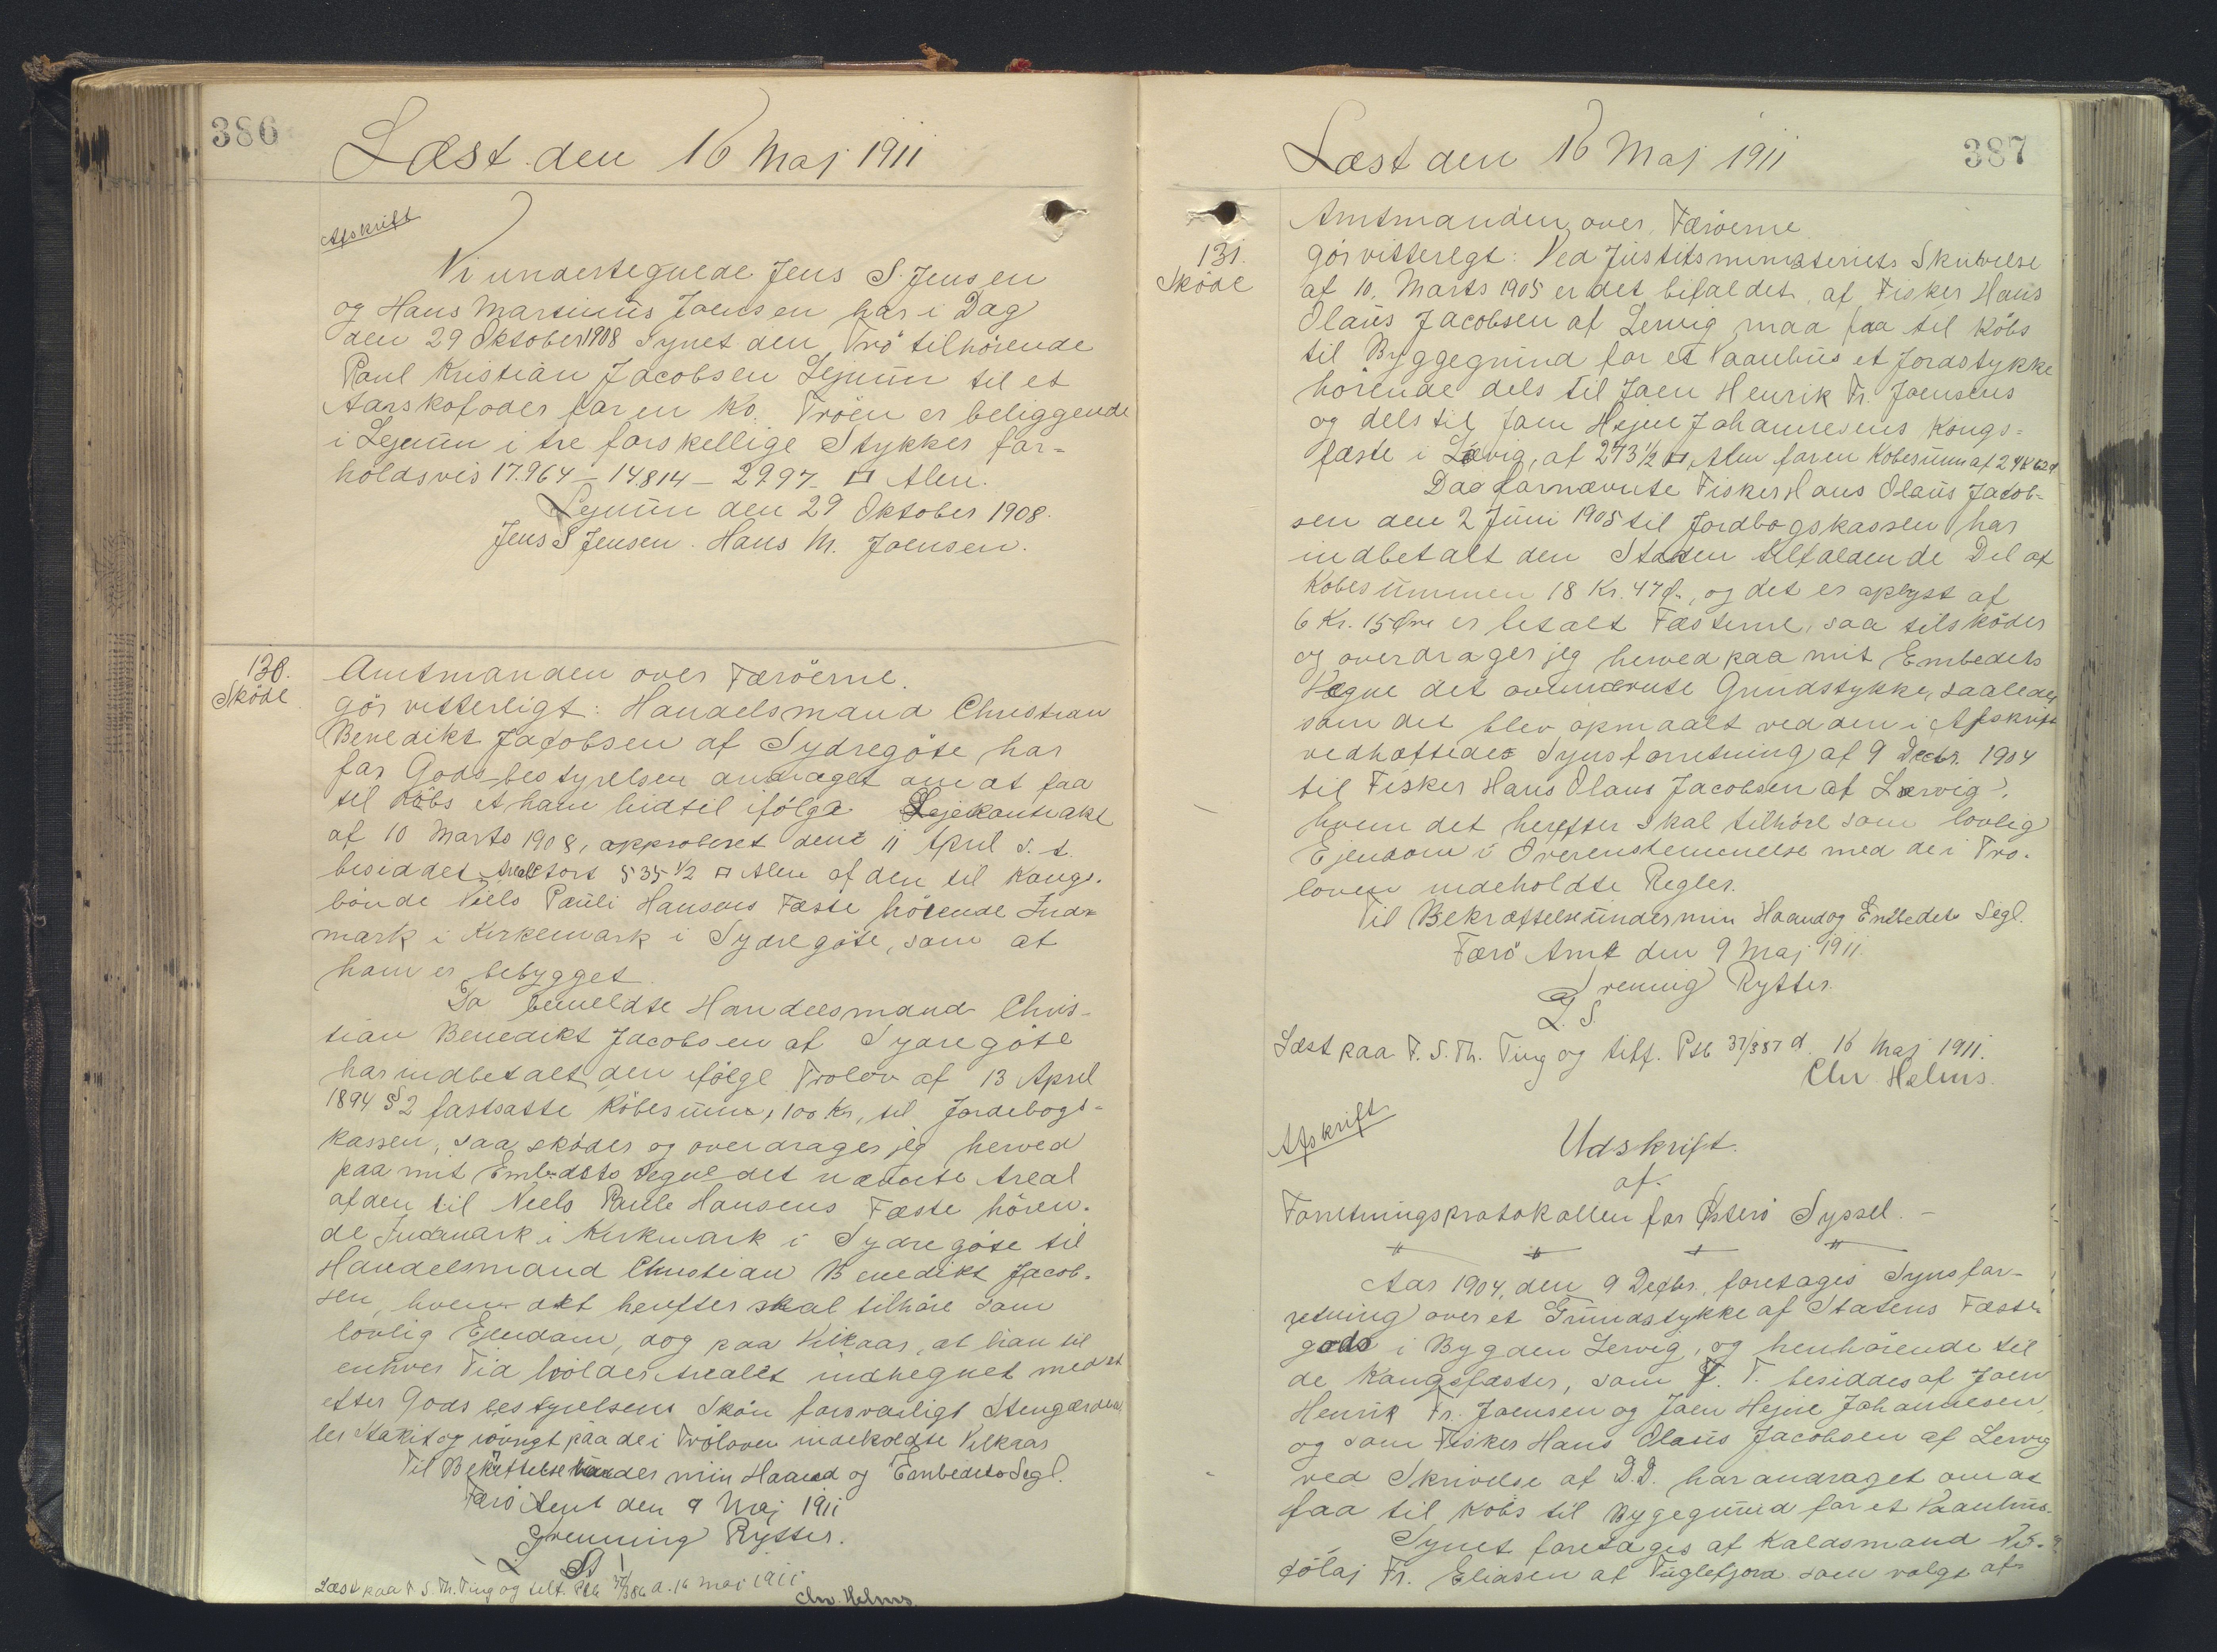 386
Læst den 16 Maj 1911
Afskrift
Vi undertegnede Jens S. Jensen
og Hans Martinus Joensen har i Dag
den 29 Oktober 1908 synet den Trö tilhörende
Paul Kristian Jacobsen Lejnum til et
Aarskofoder for en Ko. Tröen er beliggende
i Lejnum i tre forskellige Stykker for-
holdsvis 17.964 – 14814 – 2297 □ Alen.
Lejnum den 29 Oktober 1908.
Jens S Jensen. Hans M. Joensen.
130.
Sköde
Amtmanden over Færöerne.
gör vitterligt: Handelsmand Christian
Benedikt Jacobsen af Sydregöte har
for Godsbestyrelsen andraget om at faa
til Köbs et ham hidtil ifölge Lejekontrakt
af 10 Marts 1908, approberet den 11 April s. A.
besiddet Areal stort 535 1/2 □ Alen af den til Kongs-
bonde Niels Pauli Hansens Fæste hörende Ind-
mark i Kirkemark i Sydregöte, som af
ham er bebygget.
Da bemeldte Handelsmand Chris-
tian Benedikt Jacobsen af Sydregöte
har indbetalt den ifölge Trolov af 13 April
1894 § 2 fastsatte Köbesum, 100 Kr., til Jordebogs-
kassen, saa sköder og overdrager jeg herved
paa mit Embedets Vegne det nævnte Areal
af den til Niels Paule Hansens Fæste hören-
de Indmark i Kirkmark i Sydregöte til
Handelsmand Christian Benedikt Jacob-
sen, hvem det herefter skal tilhöre som
lovlig Ejendom, dog paa Vilkaar, at han til
enhver Tid holder Arealet indhegnet med et
efter Godsbestyrelsens Skön forsvarligt Stengærde el
ler Stakit og iövrigt paa de i Tröloven indeholdte Vilkaar
Til Bekræftelse under min Haand og Embedets Segl.
Færö Amt den 9 Maj 1911
Svenning Rytter.
L. S.
Læst paa F. S. Th. Ting og tilf. Ptb 37/386 d. 16 Maj 1911
Chr. Helms.
387
Læst den 16 Maj 1911
131.
Sköde
Amtmanden over Færöerne
gör vitterligt: Ved Justitsministeriets Skrivelse
af 10. Marts 1905 er det bifaldet, at Fisker Hans
Olaus Jacobsen af Lervig maa faa til Köbs
til Byggegrund for et Vaanhus et Jordstykke
hörende dels til Joen Henrik Fr. Joensens
og dels til Joen Hejne Johannesens Kongs-
fæste i Lervig, af 273 1/2 □ Alen for en Köbesum af 24 K 62 Ø
Da fornævnte Fisker Hans Olaus Jacob-
sen den 2 Juni 1905 til Jordbogskassen har
indbetalt den Staten tilfaldende Del af
Köbesummen 18 Kr. 47 Ø., og det er oplyst at
6 Kr. 15 Øre er betalt Fæsterne, saa tilsköder
og overdrager jeg herved paa mit Embedets
Vegne det ovennævnte Grundstykke, saaledes
som det blev opmaalt ved den i Afskrift
vedhæftede Synsforretning af 9 Decbr. 1904
til Fisker Hans Olaus Jacobsen af Lervig,
hvem det herefter skal tilhöre som lovlig
Ejendom i Overensstemmelse med de i Tro-
loven indeholdte Regler.
Til Bekræftelse under min Haand og Embedets Segl.
Færö Amt den 9 Maj 1911.
Svenning Rytter.
L. S.
Læst paa F. S. Th. Ting og tilf. Ptb 37/387 d. 16 Maj 1911.
Chr Helms.
Afskrift
Udskrift.
af.
Forretningsprotokollen for Österö Syssel. –
Aar 1904, den 9 Decbr., foretages Synsfor-
retning over et Grundstykke af Statens Fæste
gods i Bygden Lervig, og henhörende til
de Kongsfæster, som p. T. besiddes af Joen
Henrik Fr. Joensen og Joen Hejne Johannesen,
og som Fisker Hans Olaus Jacobsen af Lervig
ved Skrivelse af D.D. har andraget om at
faa til Köbs til Byggegrund for et Vaanhus.
Synet foretages af Kaldsmand
Fr. Eliasen af Fuglefjord som valgt af